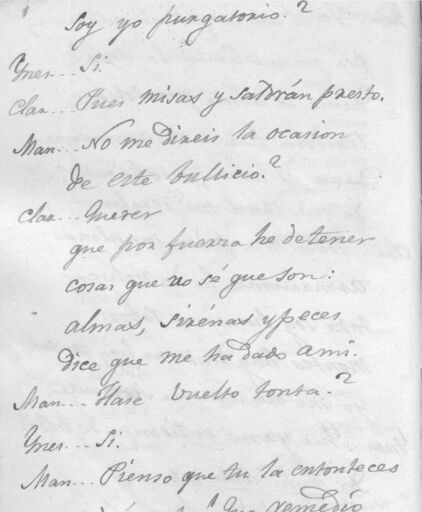 soy yo purgatorio.?
Ynes... Si.
Clar... Pues misas y saldrán presto.
Man... No me direis la ocasion
de este bullicio.?
Clar... Querer
que por fuerza he de tener
cosas que no sé que son:
almas, sirénas y peces
dice que me ha dado ami.
Man... Hase vuelto tonta.?
Ynes... Si.
Man... Pienso que tu la entonteces
que remedio